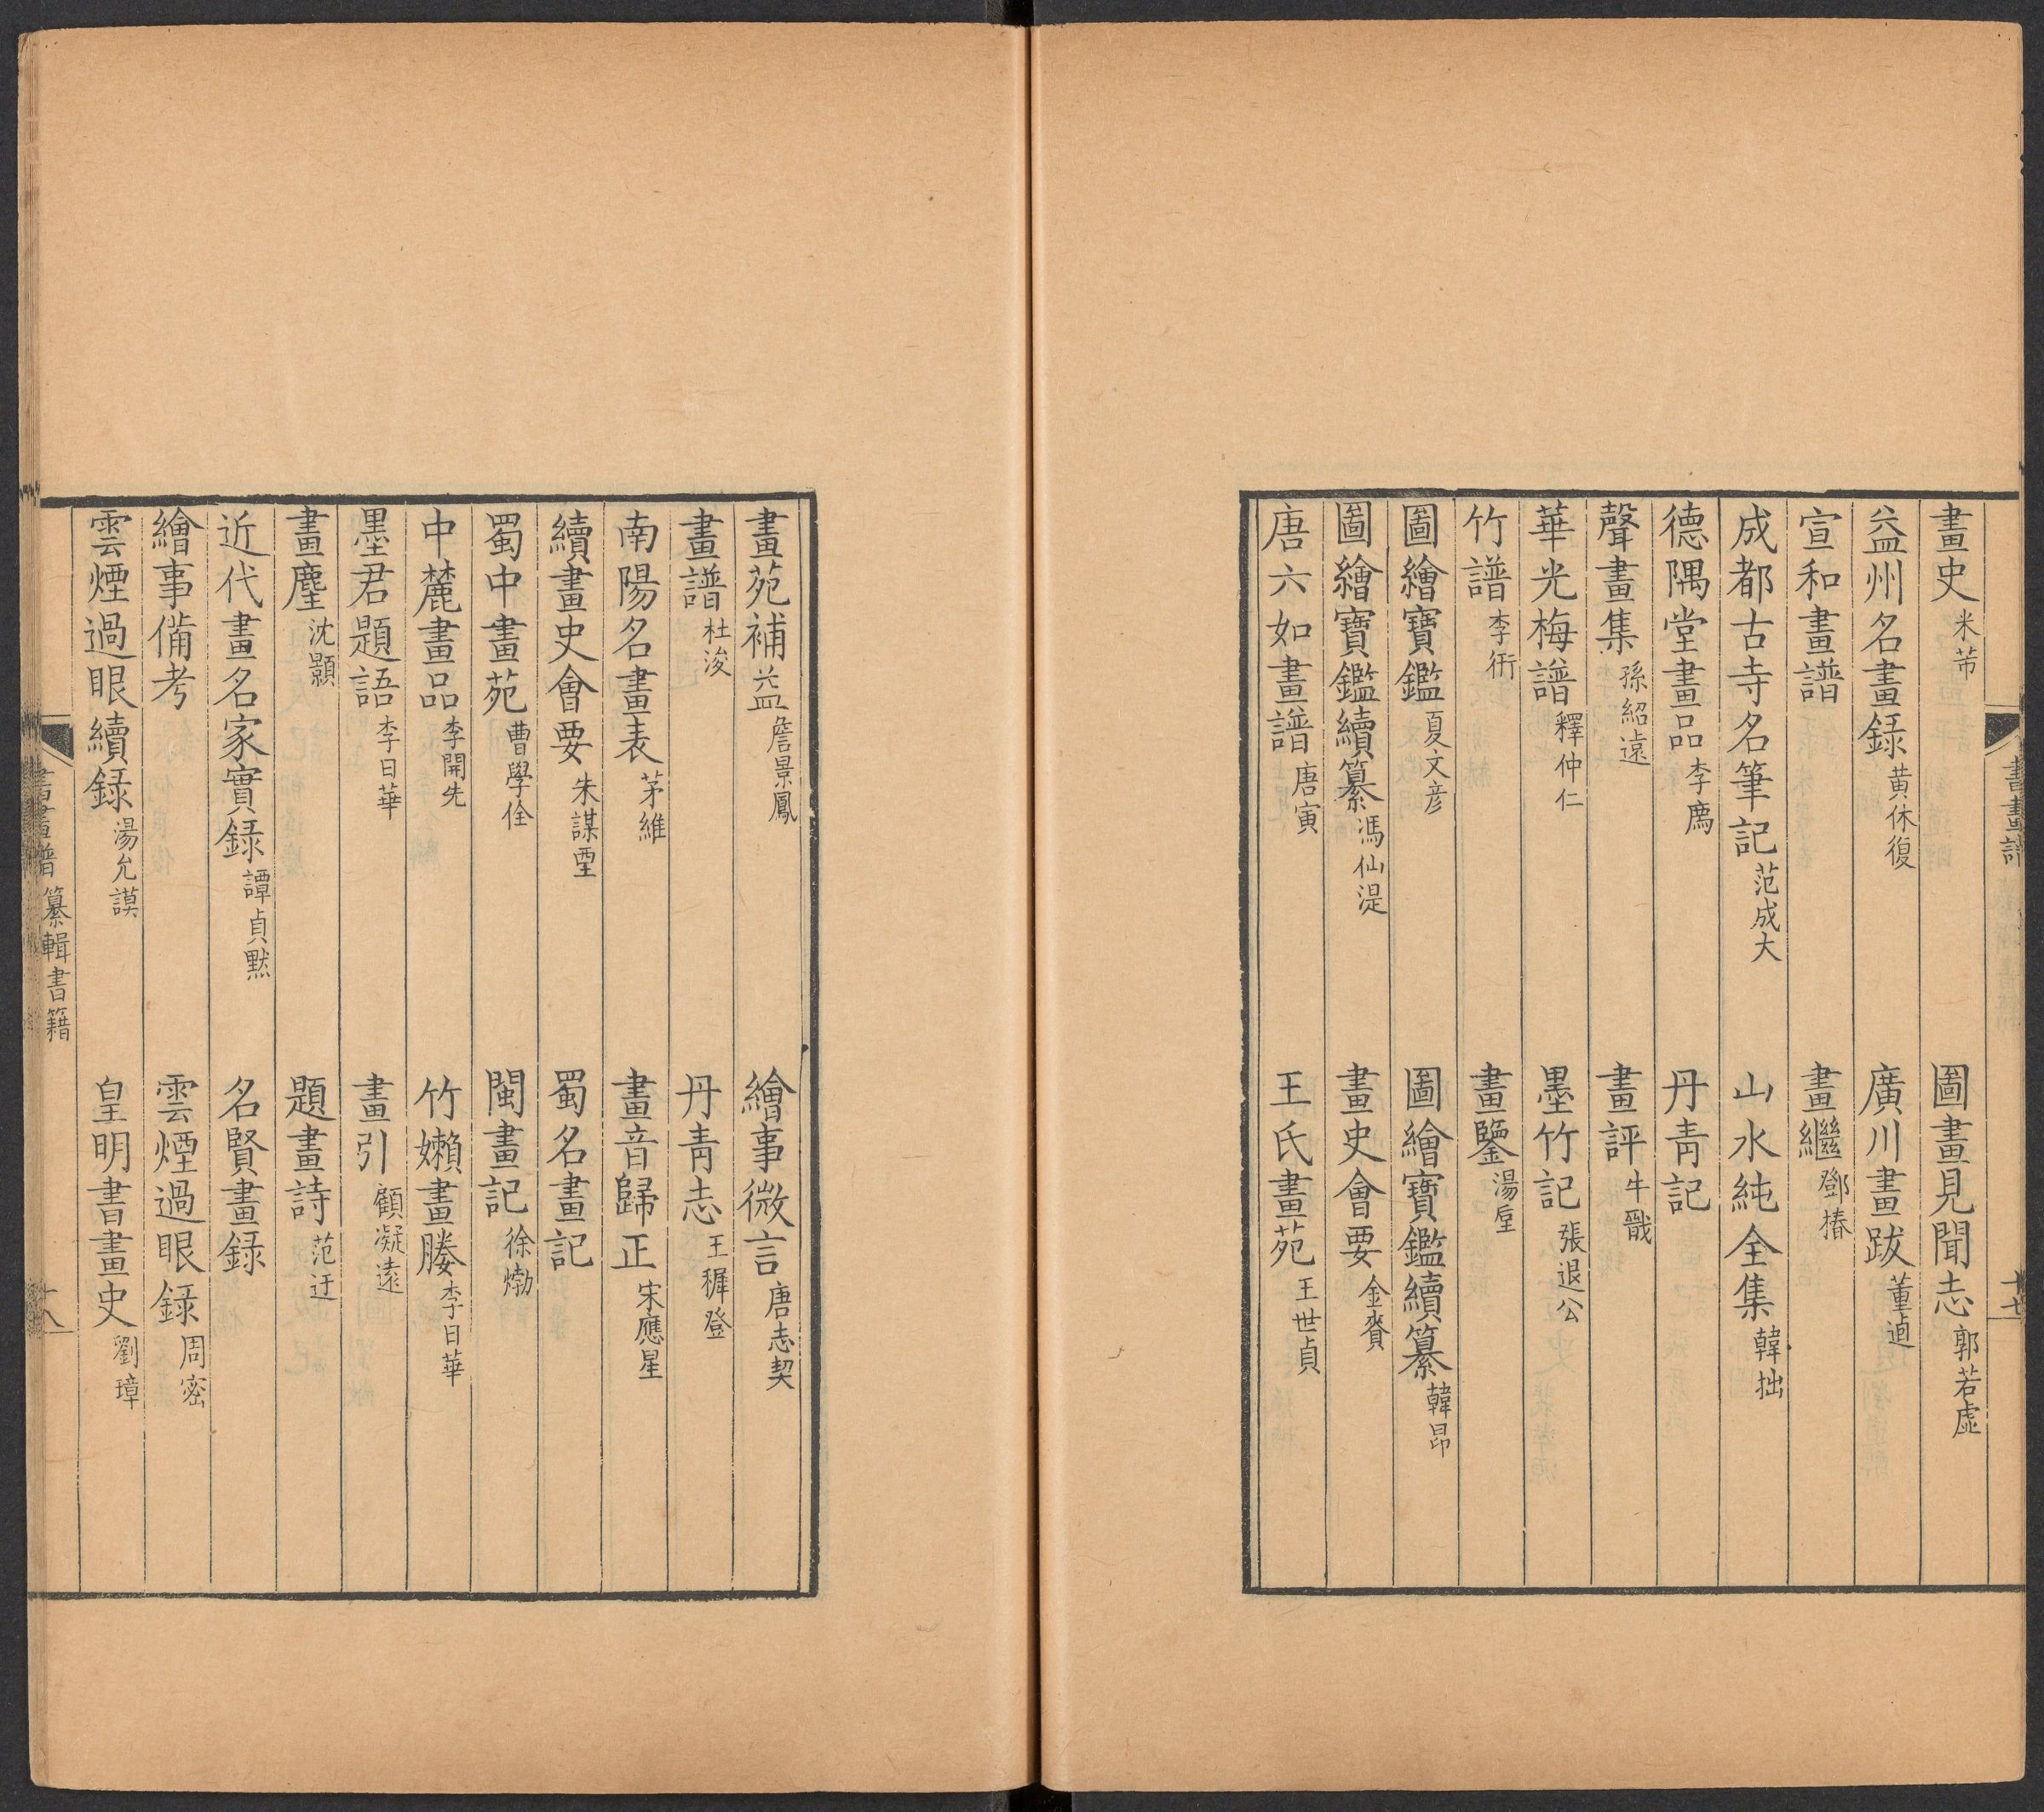 畫史 米芾 圖畫見聞志 郭若虛
益州名畫録 黄休復 廣川畫跋 董逌
宣和畫譜 畫繼 鄧椿
成都古寺名筆記 范成大 山水純全集 韓拙
德隅堂畫品 李廌 丹青記
聲畫集 孫紹遠 畫評 牛戩
華光梅譜 釋仲仁 墨竹記 張退公
竹譜 李衎 畫鑒 湯垕
圖繪寶鑑 夏文彦 圖繪寶鑑續纂 韓昂
圖繪寶鑑續纂 馮仙湜 畫史會要 金賚
唐六如畫譜 唐寅 王氏畫苑 王世貞
畫苑補益 詹景鳳 繪事微言 唐志契
畫譜 杜浚 丹青志 王穉登
南陽名畫表 茅維 畫音歸正 宋應星
續畫史會要 朱謀垔 蜀名畫記
蜀中畫苑 曹學佺 閩畫記 徐𤊹
中麓畫品 李開先 竹嬾畫媵 李日華
墨君題語 李日華 畫引 顧凝遠
畫麈 沈顥 題畫詩 范迂
近代畫名家實録 譚貞默 名賢畫録
繪事備考 雲煙過眼録 周密
雲煙過眼續録 湯允謨 皇明書畫史 劉璋
書畫譜 纂輯書籍 十八